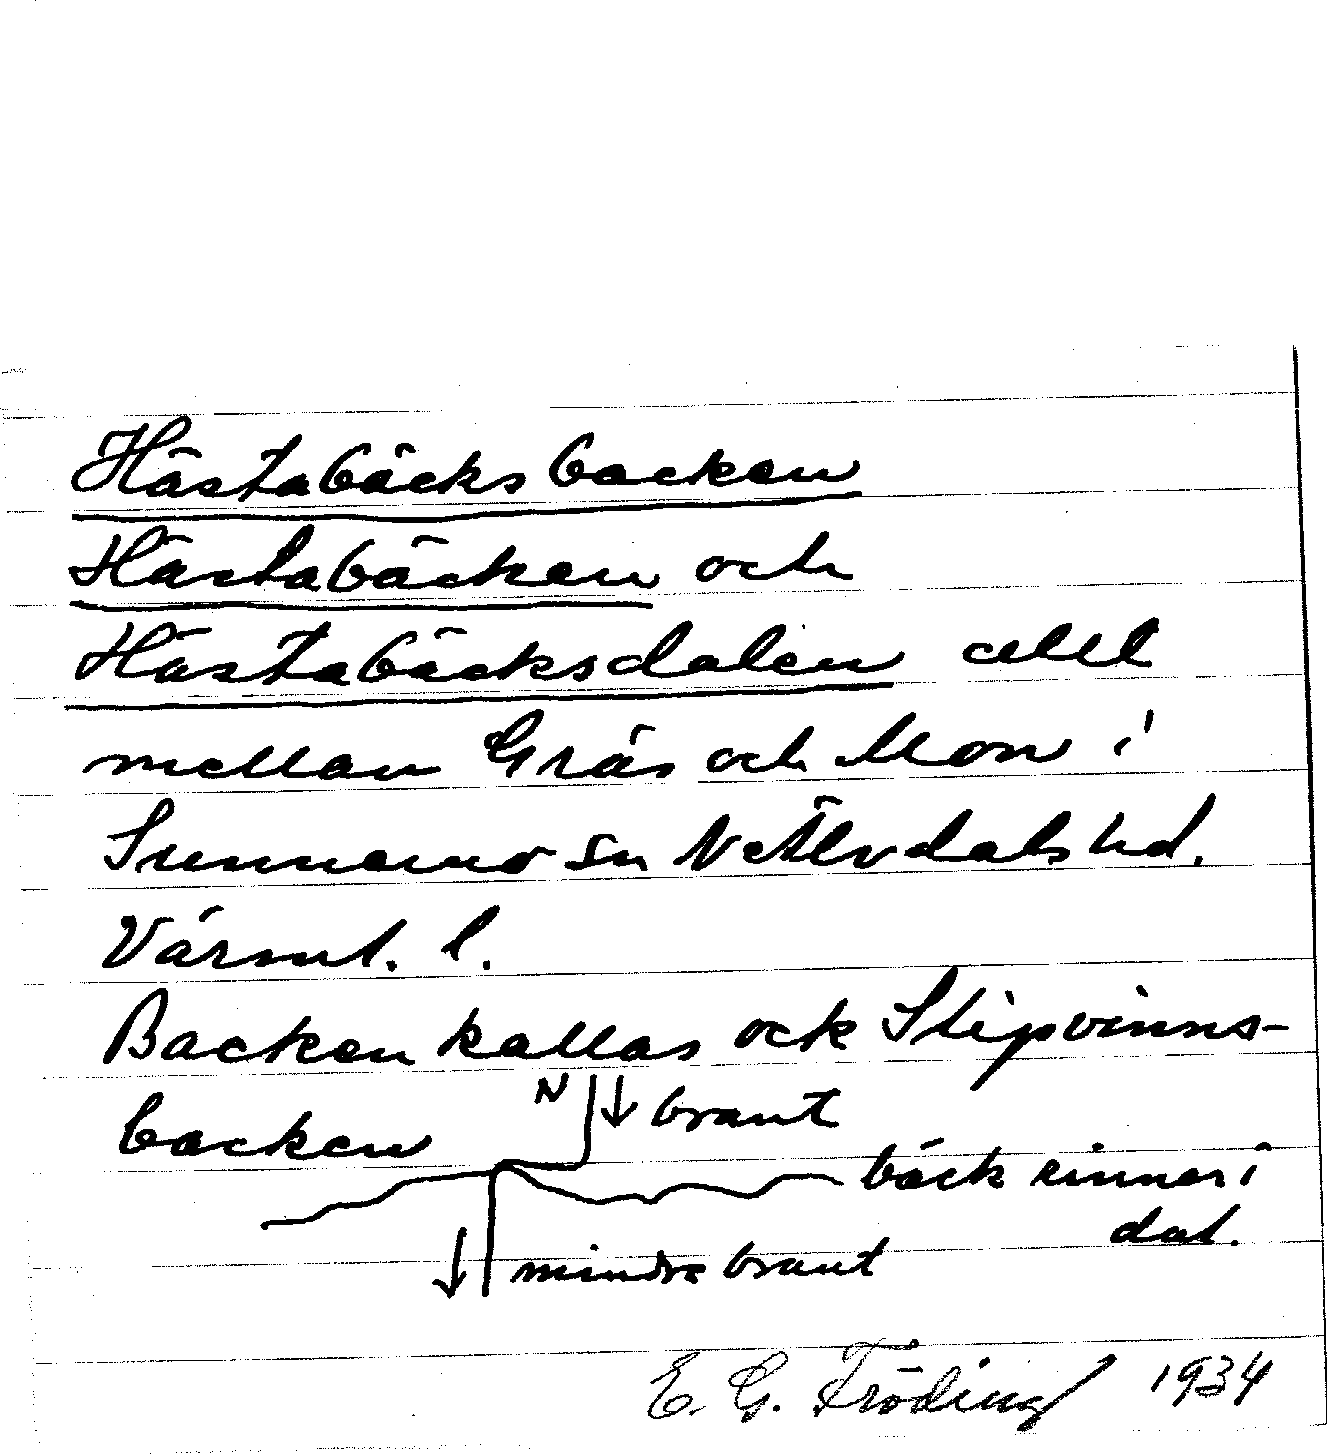 Hästabäcksbacken
Hästabäcken och
Hästabäcksdalen allt
mellan Grås och Mon i
Sunnemo sn N Älvdals hd.
Värml. l.
Backen kallas ock Slipvinns-
backen
N brant
bäck rinner i
dal.
mindre brant
E. G. Fröding 1934